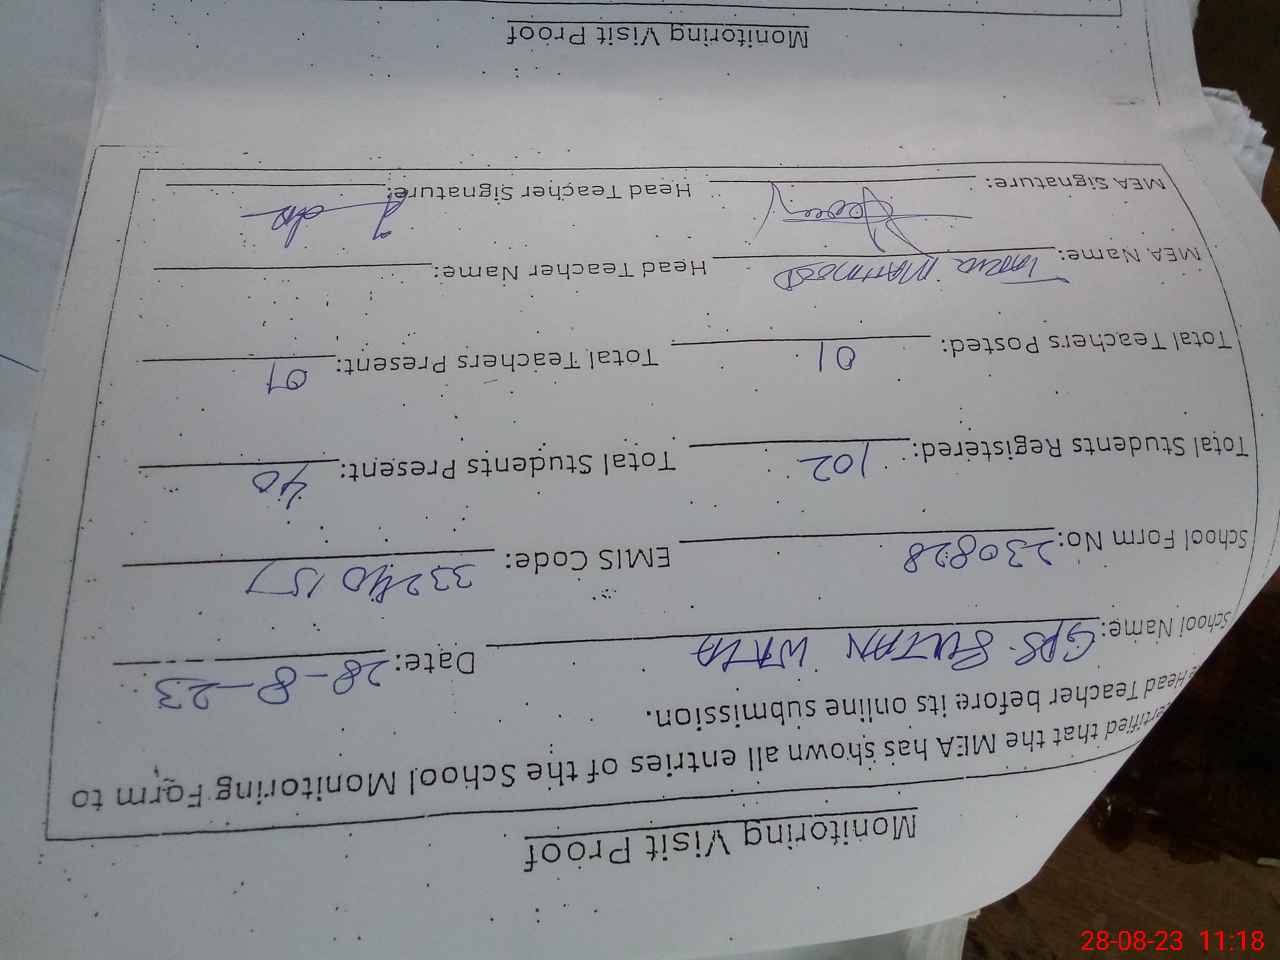 Monitoring Visit Proof
ertified that the MEA has shown all entries of the School Monitoring Form to
e Head Teacher before its online submission.
School Name: GPS SULTAN WALA Date: 28-8-23
School Form No: 230828 EMIS Code: 33240157
Total Students Registered: 102 Total Students Present: 40
Total Teachers Posted: 01 Total Teachers Present: 01
MEA Name: TARIQ MAHMOOD Head Teacher Name:
MEA Signature: Head Teacher Signature:
Monitoring Visit Proof
28-08-23 11:18